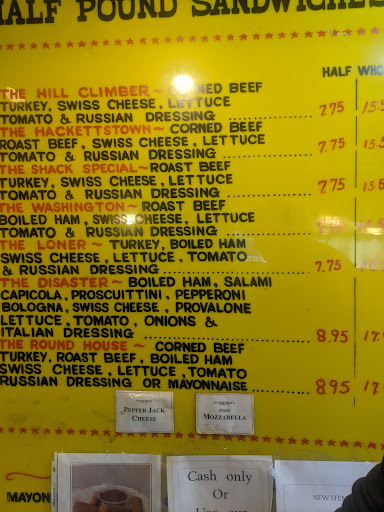 HALF POUND SANDWICHES
HALF WHO
THE HILL CLIMBER ~ CORNED BEEF
TURKEY, SWISS CHEESE, LETTUCE
TOMATO & RUSSIAN DRESSING ............ 7.75 15.5
THE HACKETTSTOWN ~ CORNED BEEF
ROAST BEEF, SWISS CHEESE, LETTUCE
TOMATO & RUSSIAN DRESSING ............ 7.75 15.5
THE SHACK SPECIAL ~ ROAST BEEF
TURKEY, SWISS CHEESE, LETTUCE
TOMATO & RUSSIAN DRESSING ............ 7.75 15.5
THE WASHINGTON ~ ROAST BEEF
BOILED HAM, SWISS CHEESE, LETTUCE
TOMATO & RUSSIAN DRESSING ............
THE LONER ~ TURKEY, BOILED HAM
SWISS CHEESE, LETTUCE, TOMATO
& RUSSIAN DRESSING ............ 7.75
THE DISASTER ~ BOILED HAM, SALAMI
CAPICOLA, PROSCUITTINI, PEPPERONI
BOLOGNA, SWISS CHEESE, PROVALONE
LETTUCE, TOMATO, ONIONS &
ITALIAN DRESSING ............ 8.95 17.
THE ROUND HOUSE ~ CORNED BEEF
TURKEY, ROAST BEEF, BOILED HAM
SWISS CHEESE, LETTUCE, TOMATO
RUSSIAN DRESSING OR MAYONNAISE .... 8.95 17.
PEPPER JACK
CHEESE
MOZZARELLA
MAYON
Cash only
Or
NEW ITEM